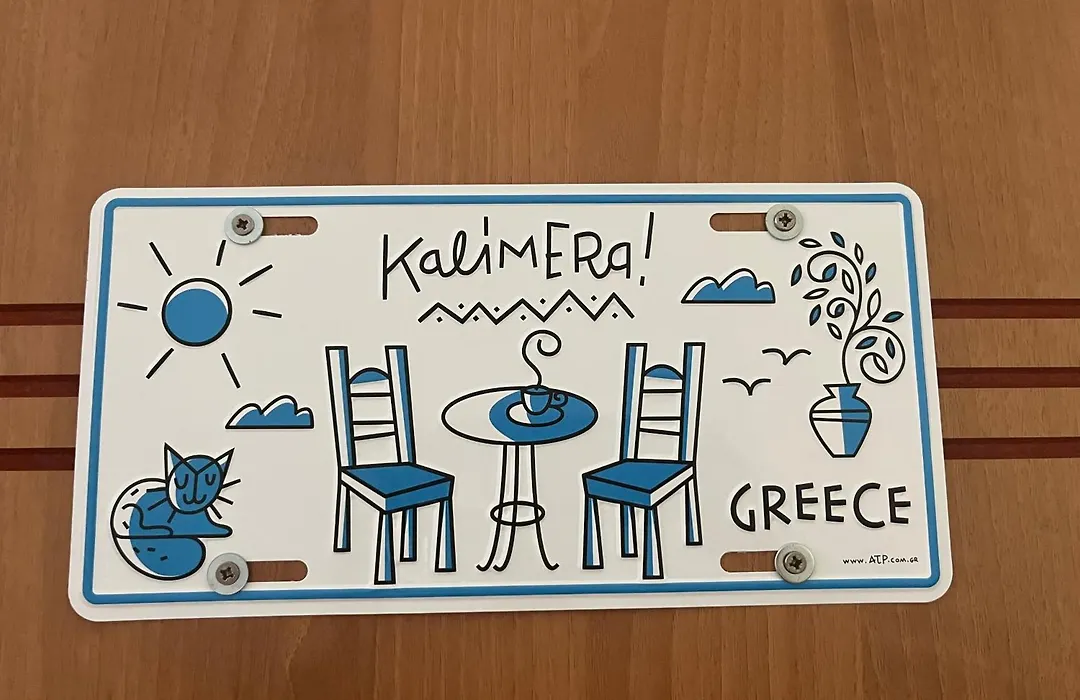 KaliMERa!
GREECE
www.ATP.com.GR